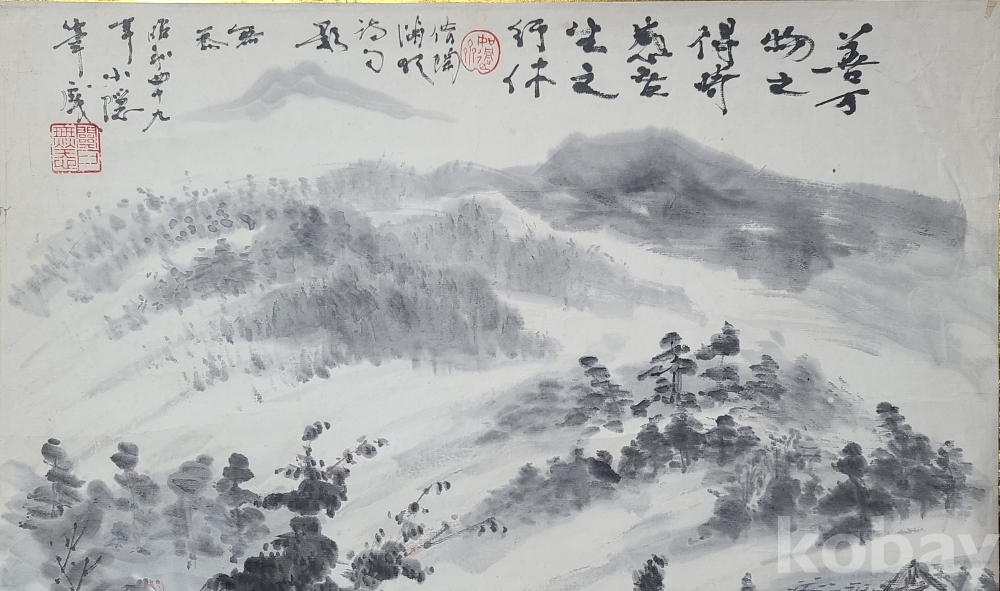 善万
物之
得時
感吾
生之
行休
借陶
淵明
詩句
題
昭和四十九
年小隠
kobay